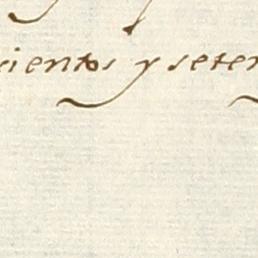 cientos y seten